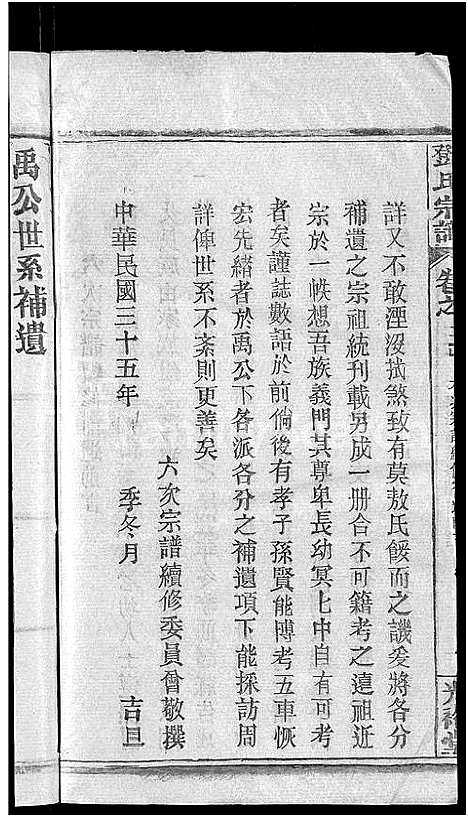 鄧氏宗譜
卷之
詳又不敢湮沒拭煞致有莫敖氏餒而之譏爰將各分
補遺之宗祖統刊載另成一册合不可籍考之遠祖近
宗於一帙想吾族義門其尊卑長幼冥七中自有可考
者矣謹誌數語於前倘後有孝子孫賢能博考五車恢
宏先緒者於禹公下各派各分之補遺項下能採訪周
詳俾世系不紊則更善矣
六次宗譜續修委員會敬撰
中華民國三十五年 季冬月 吉旦
禹公世系補遺